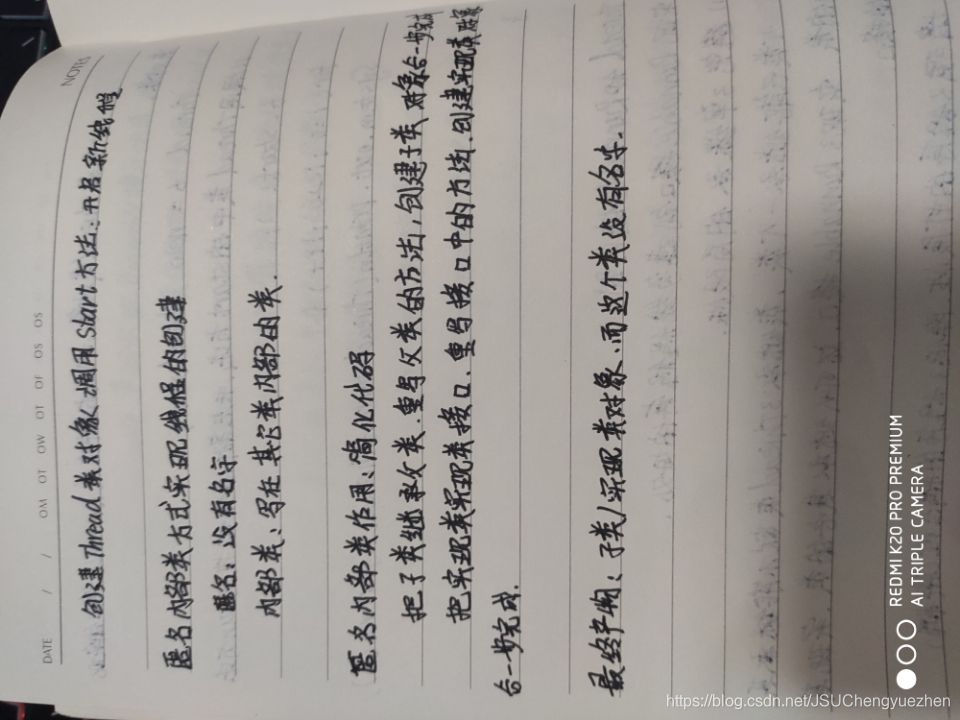 NOTE
DATE / / OM OT OW OT OF OS OS
创建Thread类对象,调用Start方法:开启新线程
匿名内部类方式实现线程的创建
匿名:没有名字
内部类:写在其它类内部的类.
匿名内部类作用:简化代码
把子类继承父类.重写父类的方法,创建子类对象合一步完成
把实现类实现类接口.重写接口中的方法.创建实现类对象
合一步完成.
最终产物:子类/实现类对象、而这个类没有名字.
REDMI K20 PRO PREMIUM
AI TRIPLE CAMERA
https://blog.csdn.net/JSUChengyuezhen